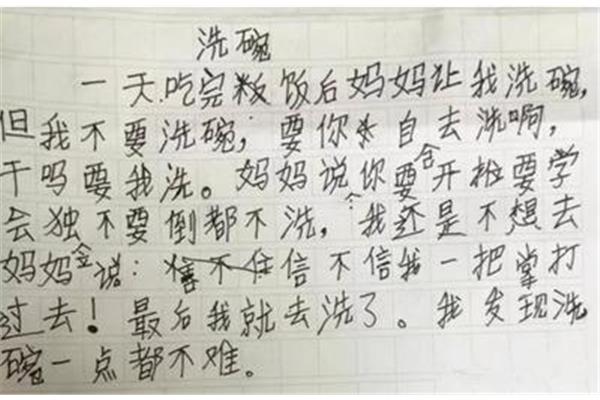 洗碗
一天吃完粄饭后妈妈让我洗碗,
但我不要洗碗,要你自去洗啊,
干吗要我洗。妈妈说你要会开松要学
会独不要倒都不洗,我还是不想去
妈妈说:信不信我一把掌打
过去!最后我就去洗了。我发现洗
碗一点都不难。